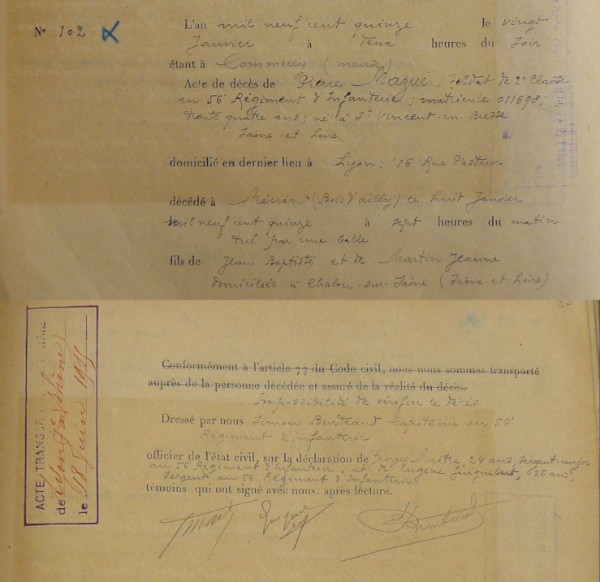 N° 102
L'an mil neuf cent quinze le vingt
Janvier à deux heures du soir
étant à Commercy (meuse)
Acte de décès de Pierre Mazue, soldat de 2e Classe
au 56 Régiment d'Infanterie ; matricule 011698,
trente quatre ans ; né à St Vincent en Bresse
Saône et Loire
domicilié en dernier lieu à Lyon, 16 Rue Pasteur
décédé à Mécrin (Bois d'ailly) le huit Janvier
mil neuf cent quinze à sept heures du matin
tué par une balle
fils de Jean Baptiste et de Martin Jeanne
domiciliés à Chalon-sur-Saône (Saône-et-Loire)
Conformément à l'article 77 du Code civil, nous nous sommes transporté
auprès de la personne décédée et assuré de la réalité du décès.
Impossibilité de vérifier le décès
Dressé par nous Simon Capitaine au 56
Régiment d'Infanterie
officier de l'état civil, sur la déclaration de 24 ans, sergent-major
au 56 Régiment d'Infanterie et de Eugène 25 ans,
Sergent au 56 Régiment d'Infanterie
témoins qui ont signé avec nous, après lecture.
ACTE TRANSCR
de Lyon (Rhône)
le 18 Juin 1915